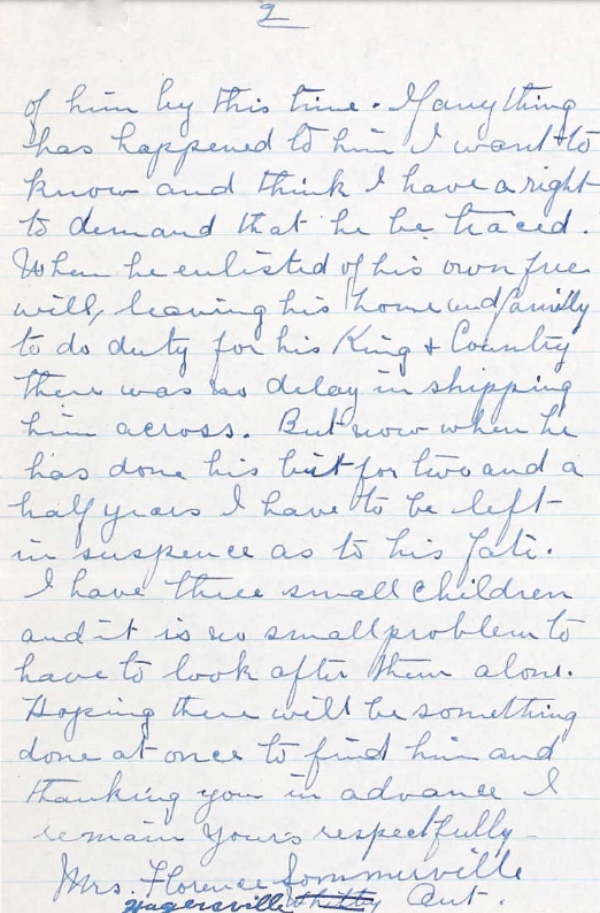 2
of him by this time. If anything
has happened to him I want to
know and think I have a right
to demand that he be traced.
When he enlisted of his own free
will, leaving his home and family
to do duty for his King & Country
there was no delay in shipping
him across. But now when he
has done his bit for two and a
half years I have to be left
in suspence as to his fate.
I have three small children
and it is no small problem to
have to look after them alone.
Hoping there will be something
done at once to find him and
thanking you in advance I
remain yours respectfully
Mrs. Florence Sommerville
Hagersville Whitby Ont.